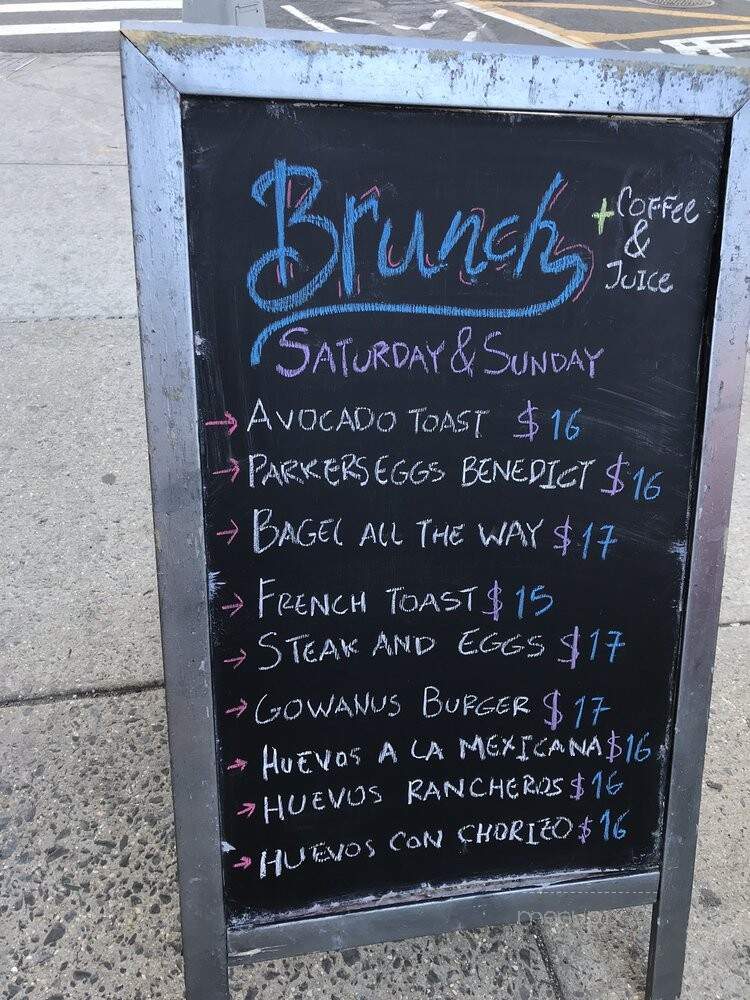 Brunch
+ COFFEE
&
JUICE
SATURDAY & SUNDAY
→ AVOCADO TOAST $16
→ PARKERS EGGS BENEDICT $16
→ BAGEL ALL THE WAY $17
→ FRENCH TOAST $15
→ STEAK AND EGGS $17
→ GOWANUS BURGER $17
→ HUEVOS A LA MEXICANA $16
→ HUEVOS RANCHEROS $16
→ HUEVOS CON CHORIZO $16